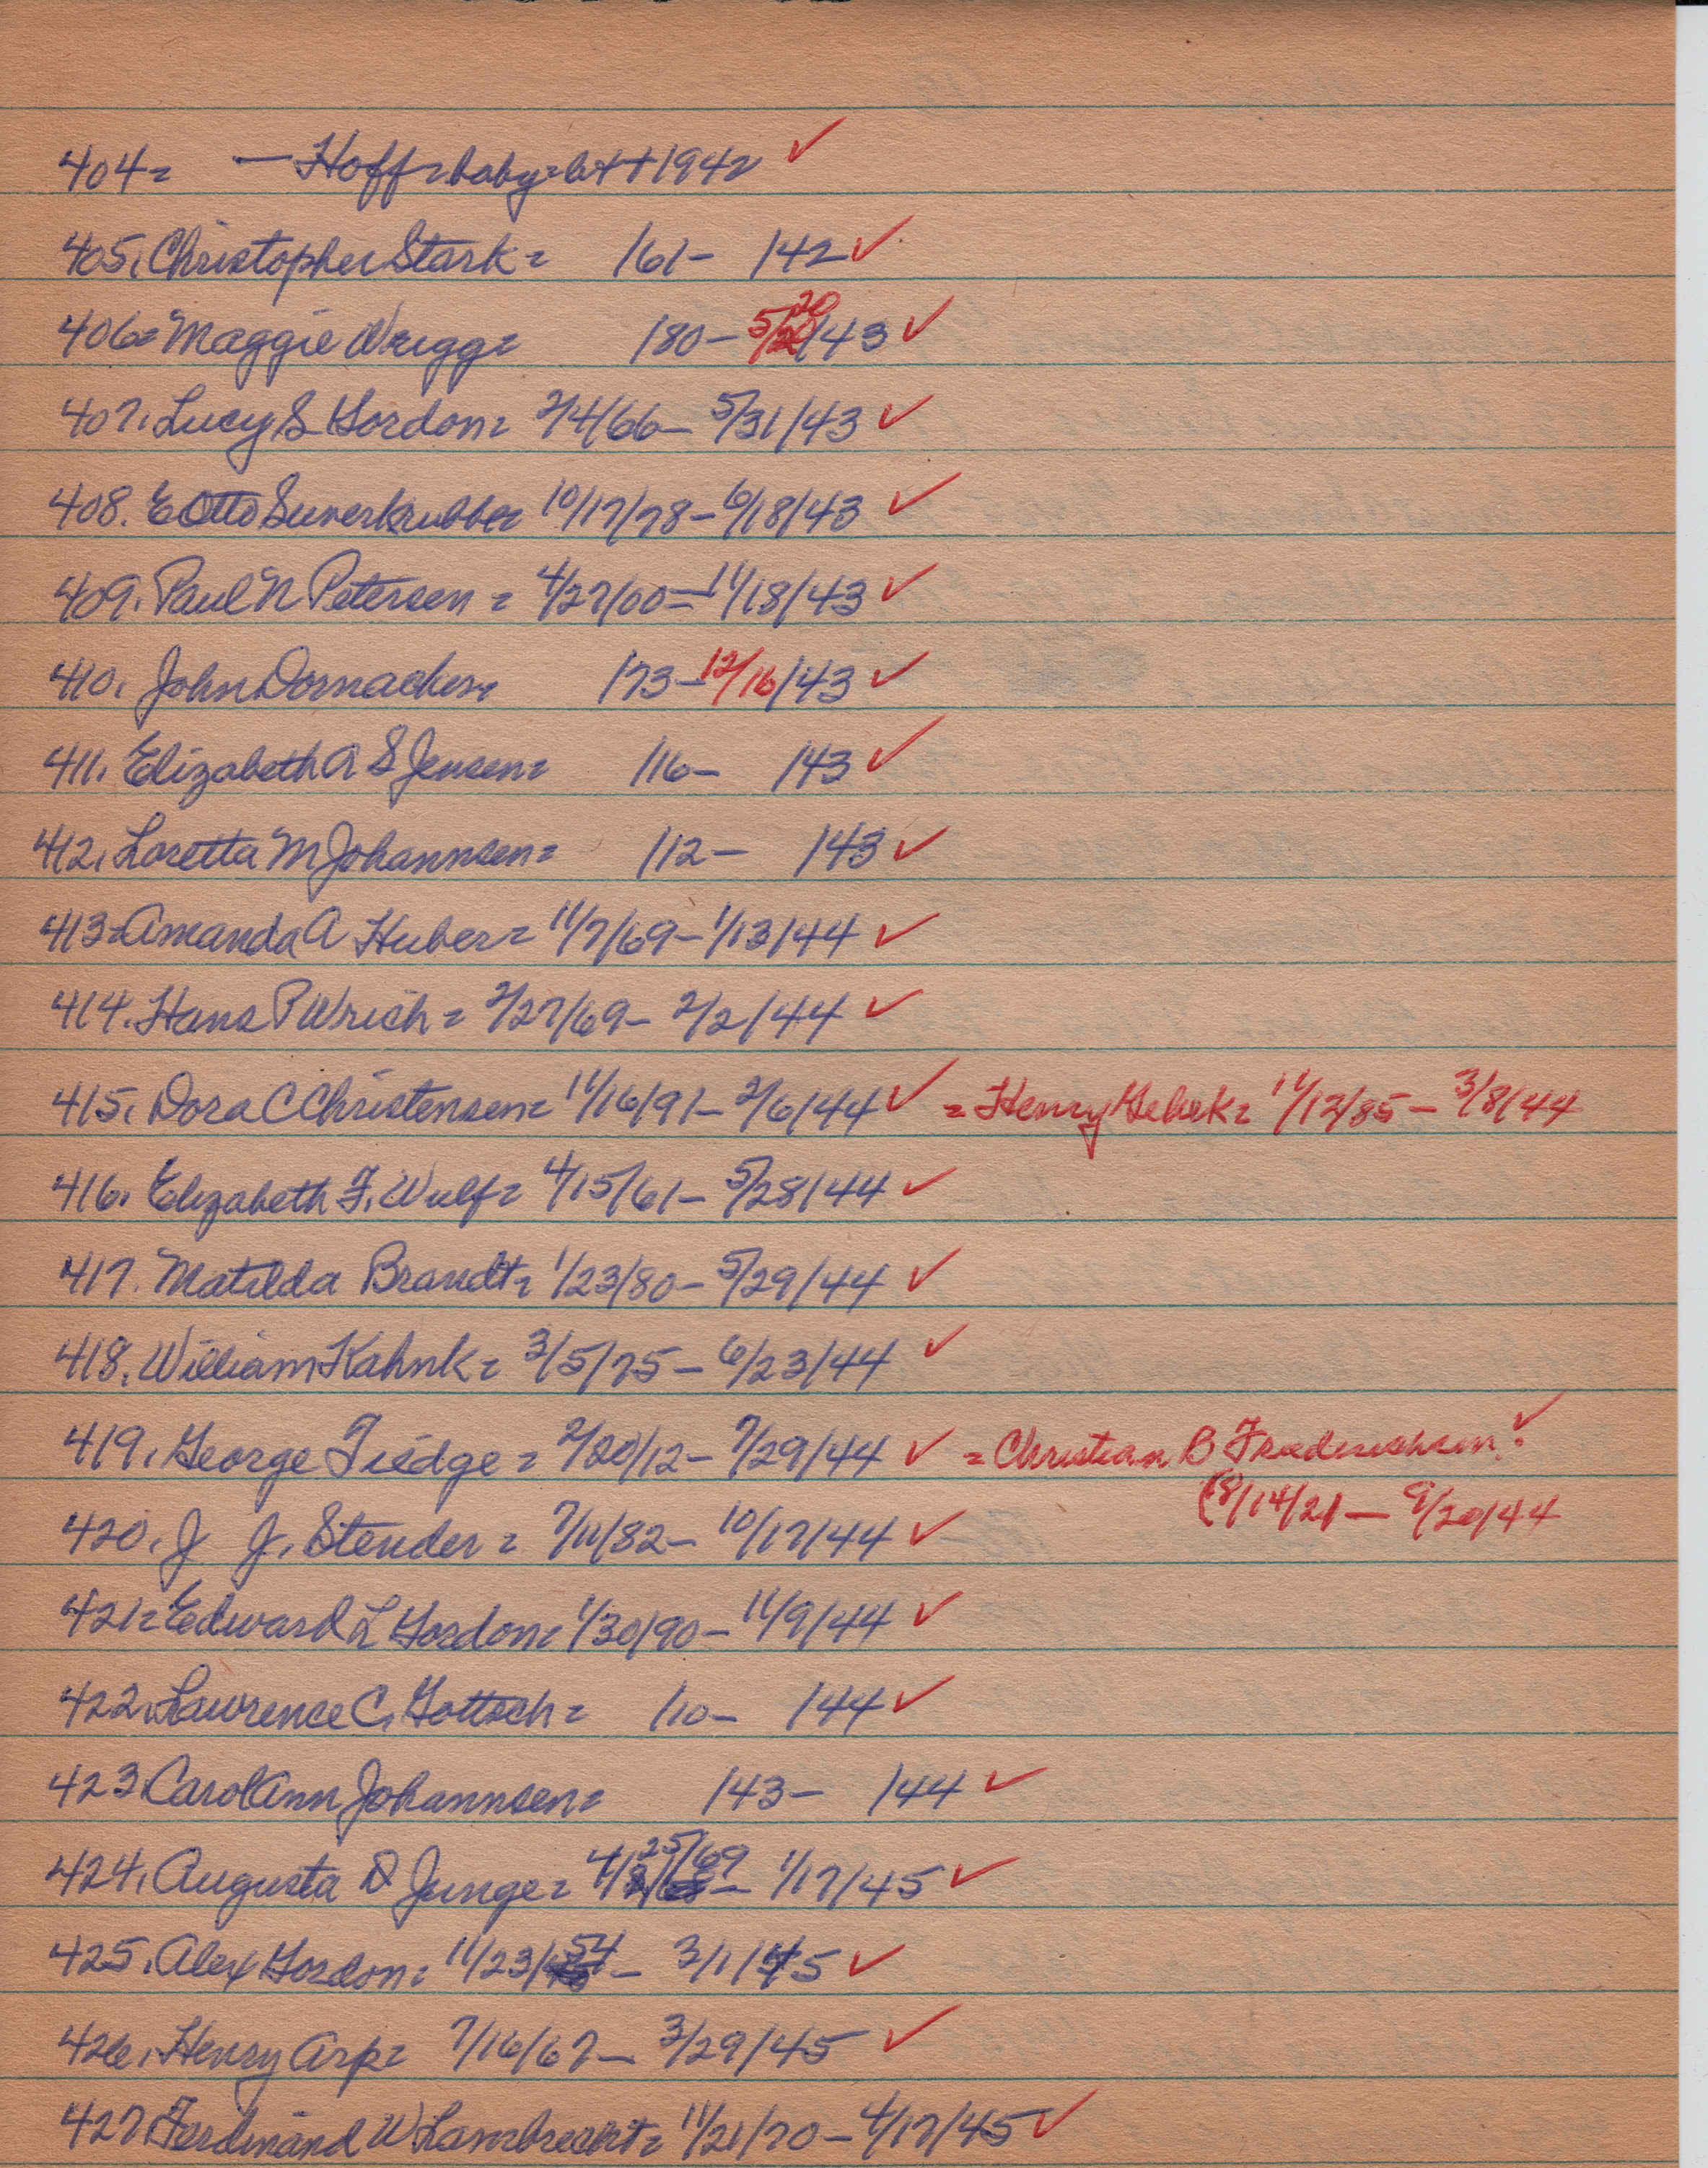 404= — Hoff=baby=b++1942 ✓
405. Christopher Stark= /61- /42 ✓
406= Maggie Wrigg= /80- 5/20/43 ✓
407. Lucy S Gordon= 2/4/66- 5/31/43 ✓
408. E Otto Suverkrubbe= 10/17/78- 6/18/43 ✓
409. Paul N Petersen = 4/27/00= 11/18/43 ✓
410. John Dornacker= /73- 12/16/43 ✓
411. Elizabeth A S Jensen= /16- /43 ✓
412. Loretta M Johannsen= /12- /43 ✓
413= Amanda A Huber= 11/7/69- 1/13/44 ✓
414. Hans P Wrich= 2/27/69- 2/2/44 ✓
415. Dora C Christensen= 11/16/91- 2/6/44 ✓ = Henry Gehek= 11/12/85- 3/8/44
416. Elizabeth F. Wulf= 4/15/61- 5/28/44 ✓
417. Matilda Brandt= 1/23/80- 5/29/44 ✓
418. William Kahnk= 3/5/75- 6/23/44 ✓
419. George Tiedge = 2/20/12- 7/29/44 ✓ = Christian B Friedrichsen. ✓
(8/14/21- 9/20/44
420. J J. Stender = 7/11/82- 10/17/44 ✓
421= Edward L Gordon= 1/30/90- 11/9/44 ✓
422. Lawrence C. Gottsch= /10- /44 ✓
423. Carol Ann Johannsen= /43- /44 ✓
424. Augusta D Junge= 4/25/69- 1/17/45 ✓
425. Alex Gordon= 11/23/54- 3/1/45 ✓
426. Henry Arp= 7/16/67- 3/29/45 ✓
427. Ferdinand W Lambrecht= 11/21/70- 4/17/45 ✓